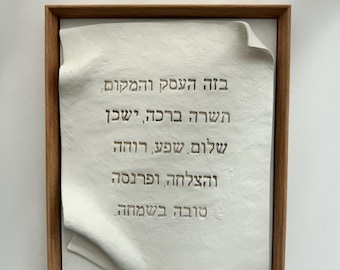 בזה העסק והמקום,
תשרה ברכה, ישכן
שלום, שפע, רוחה
והצלחה, ופרנסה
טובה בשמחה.